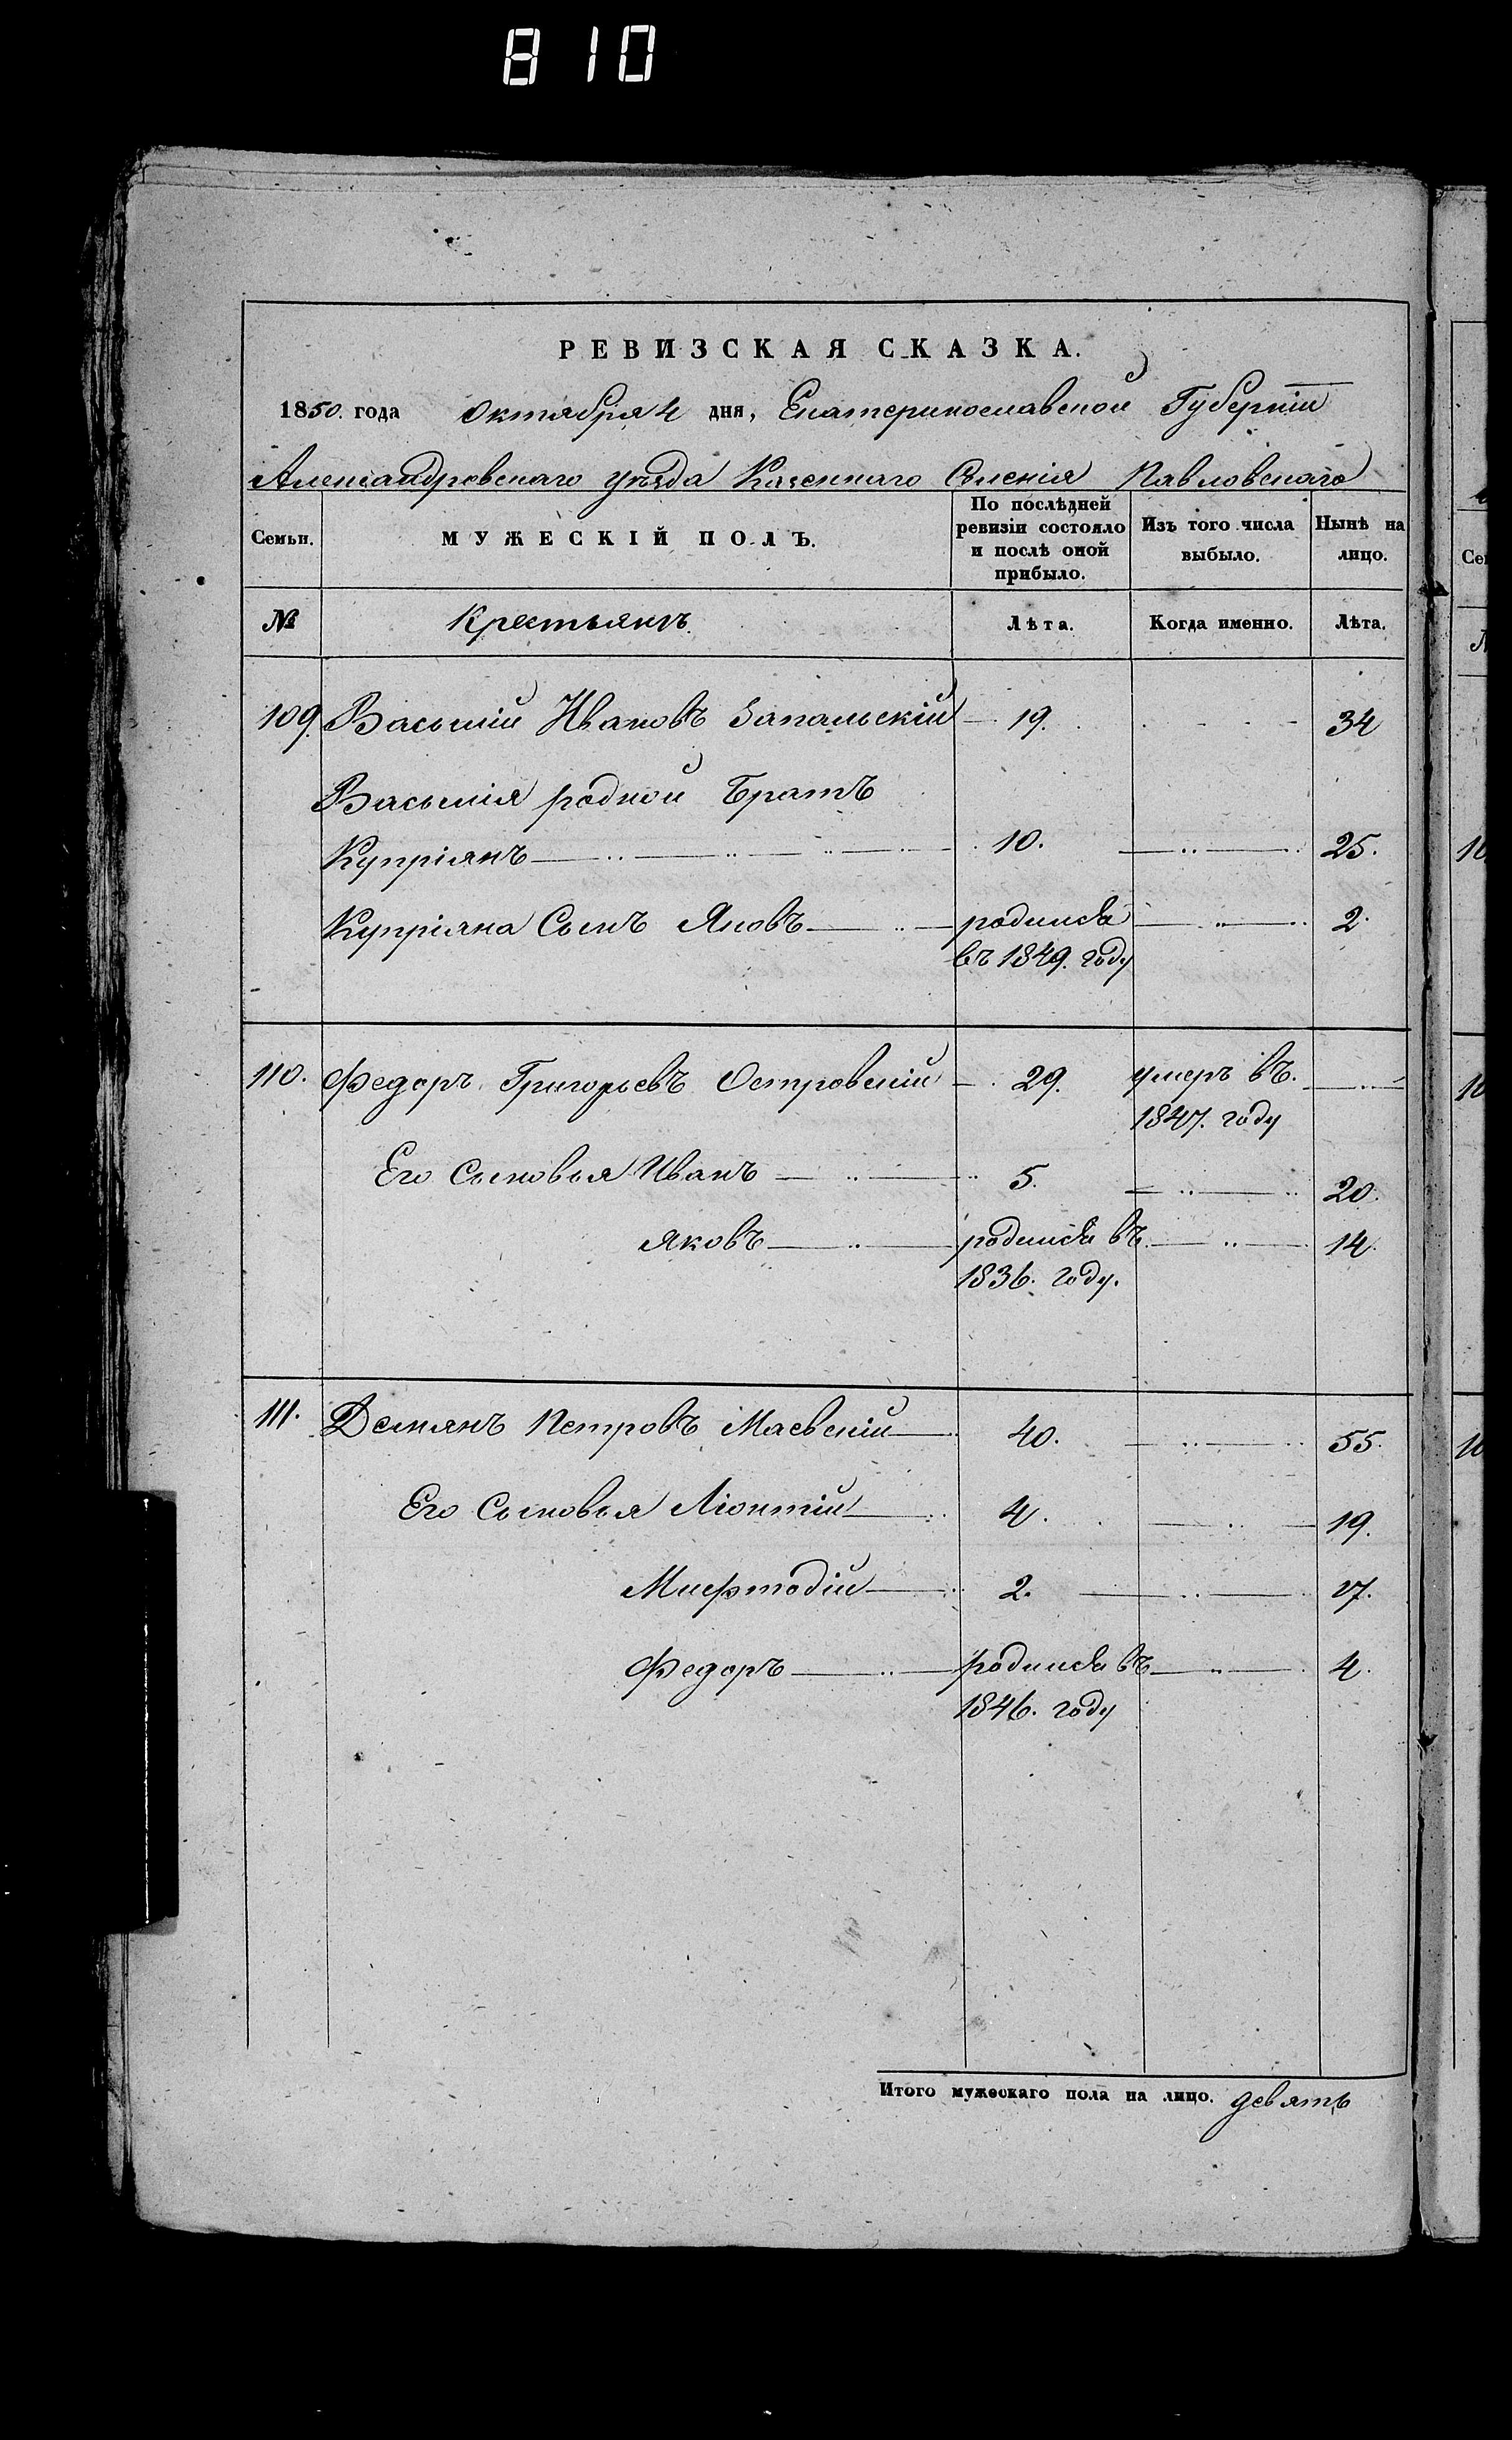 810
РЕВИЗСКАЯ СКАЗКА.
1850. года Октября 4 дня, Екатеринославской Губерніи
Александровскаго уѣзда Казеннаго Селенія Павловскаго
Семьи. МУЖЕСКІЙ ПОЛЪ. По послѣдней ревизіи состояло и послѣ оной прибыло. Изъ того числа выбыло. Нынѣ на лицо.
№ Крестьянъ. Лѣта. Когда именно. Лѣта.
109. Василій Ивановъ Запальскій 19. 34
Василія родной Братъ
Купріянъ 10. 25.
Купріяна Сынъ Яковъ родился 2.
въ 1849. году
110. Федоръ Григорьевъ Островскій 29. умеръ въ.
1847. году
Его Сыновья Иванъ 5. 20.
Яковъ родился въ 14.
1836. году.
111. Демянъ Петровъ Маевскій 40. 55.
Его Сыновья Ліонтій 4. 19.
Мефтодій 2. 17.
Федоръ родился въ 4.
1846. году
Итого мужескаго пола на лицо. девять